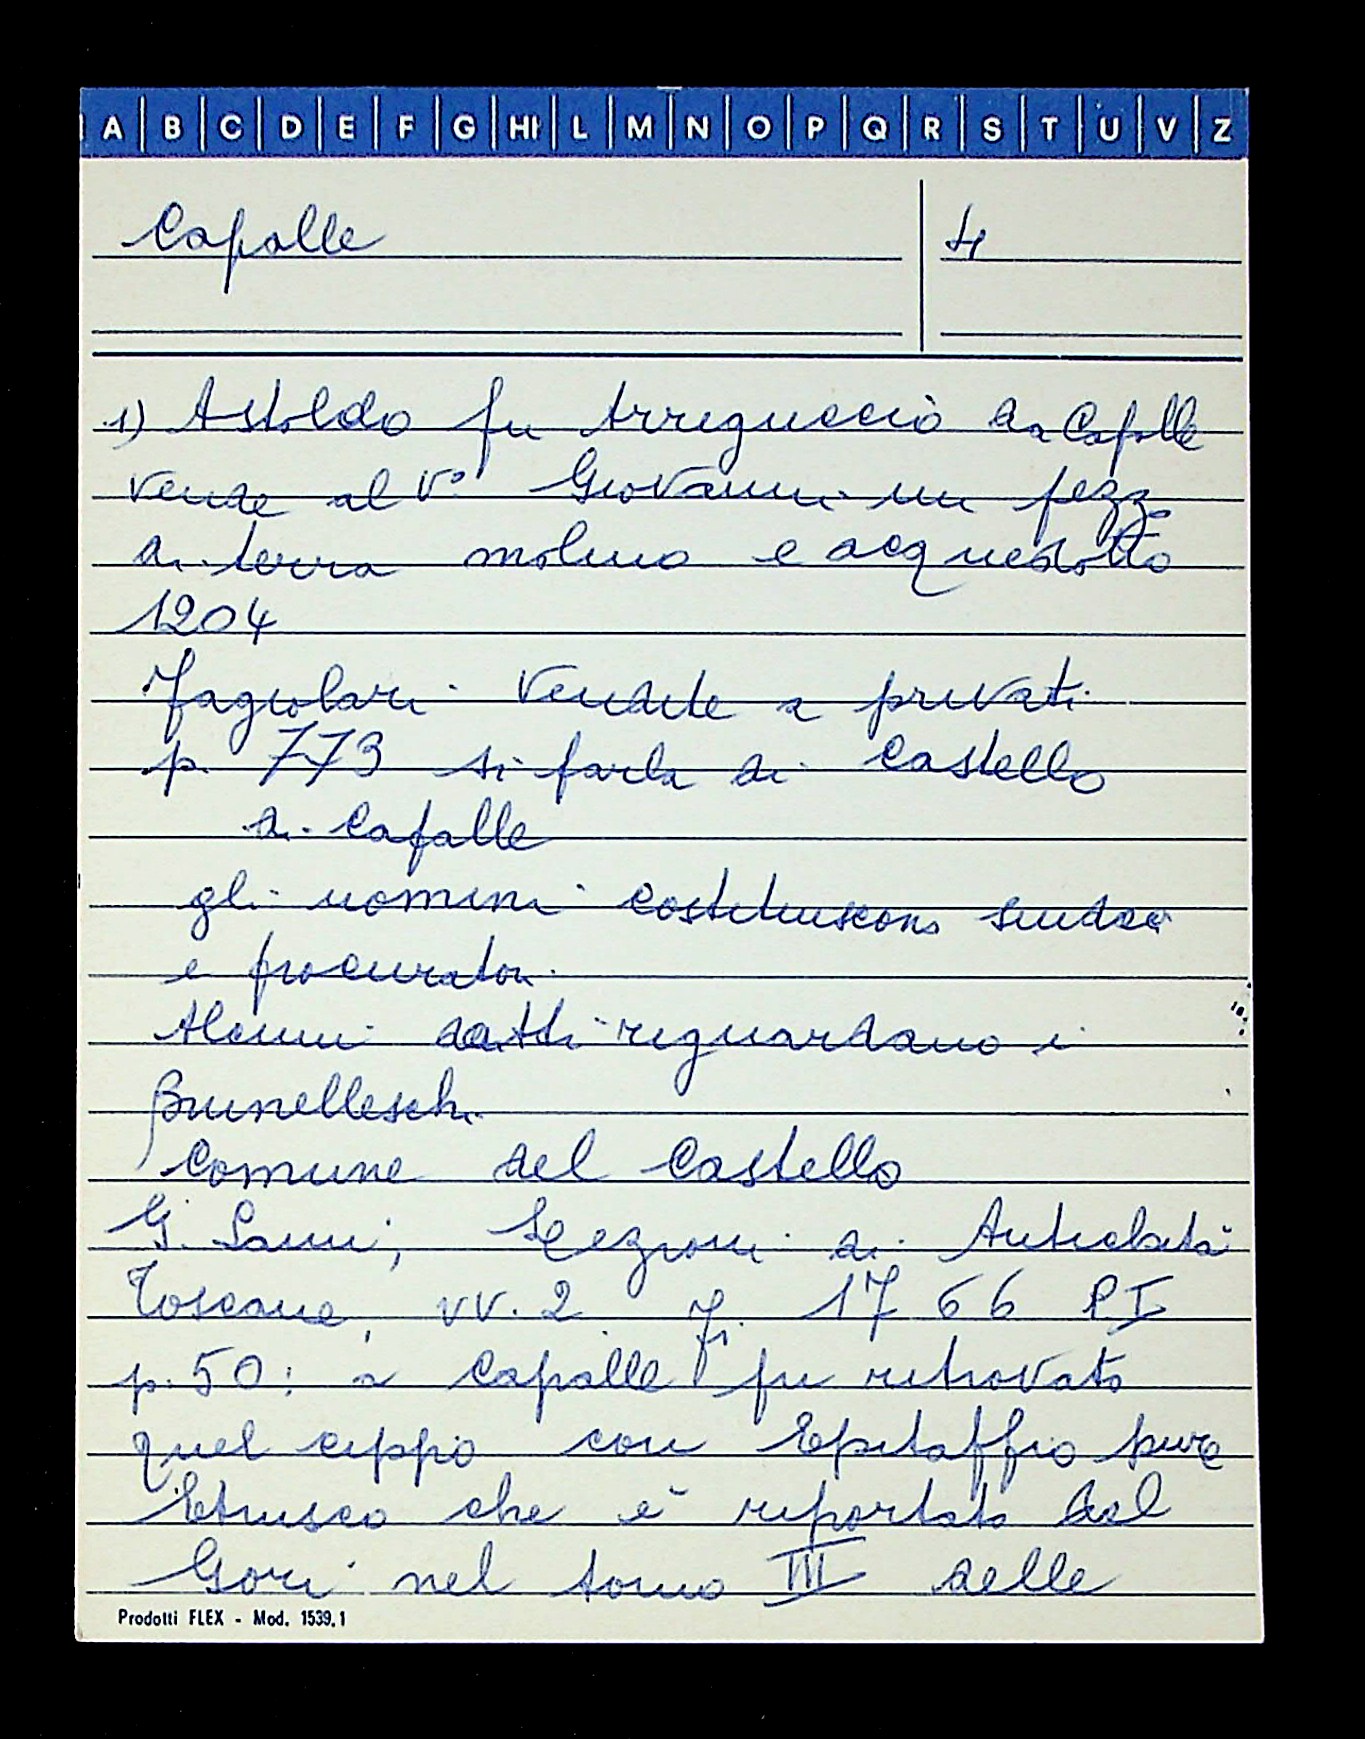 A B C D E F G HI L M N O P Q R S T U V Z
Capalle 4
1) Astoldo fu Arriguccio da Capalle
vende al V° Giovanni un pezzo
di terra molino e acquedotto
1204
Fagiolari vendute a privati
p. 773 si parla di Castello
di Capalle
gli uomini costituiscono sindaci
e procuratori
Alcuni atti riguardano i
Brunelleschi
Comune del Castello
G. Lami, Lezioni di Antichità
Toscane, vv. 2 Fi 1766 P I
p. 50: a Capalle fu ritrovato
quel cippo con Epitaffio pure
Etrusco che è riportato dal
Gori nel tomo III delle
Prodotti FLEX - Mod. 1539.1